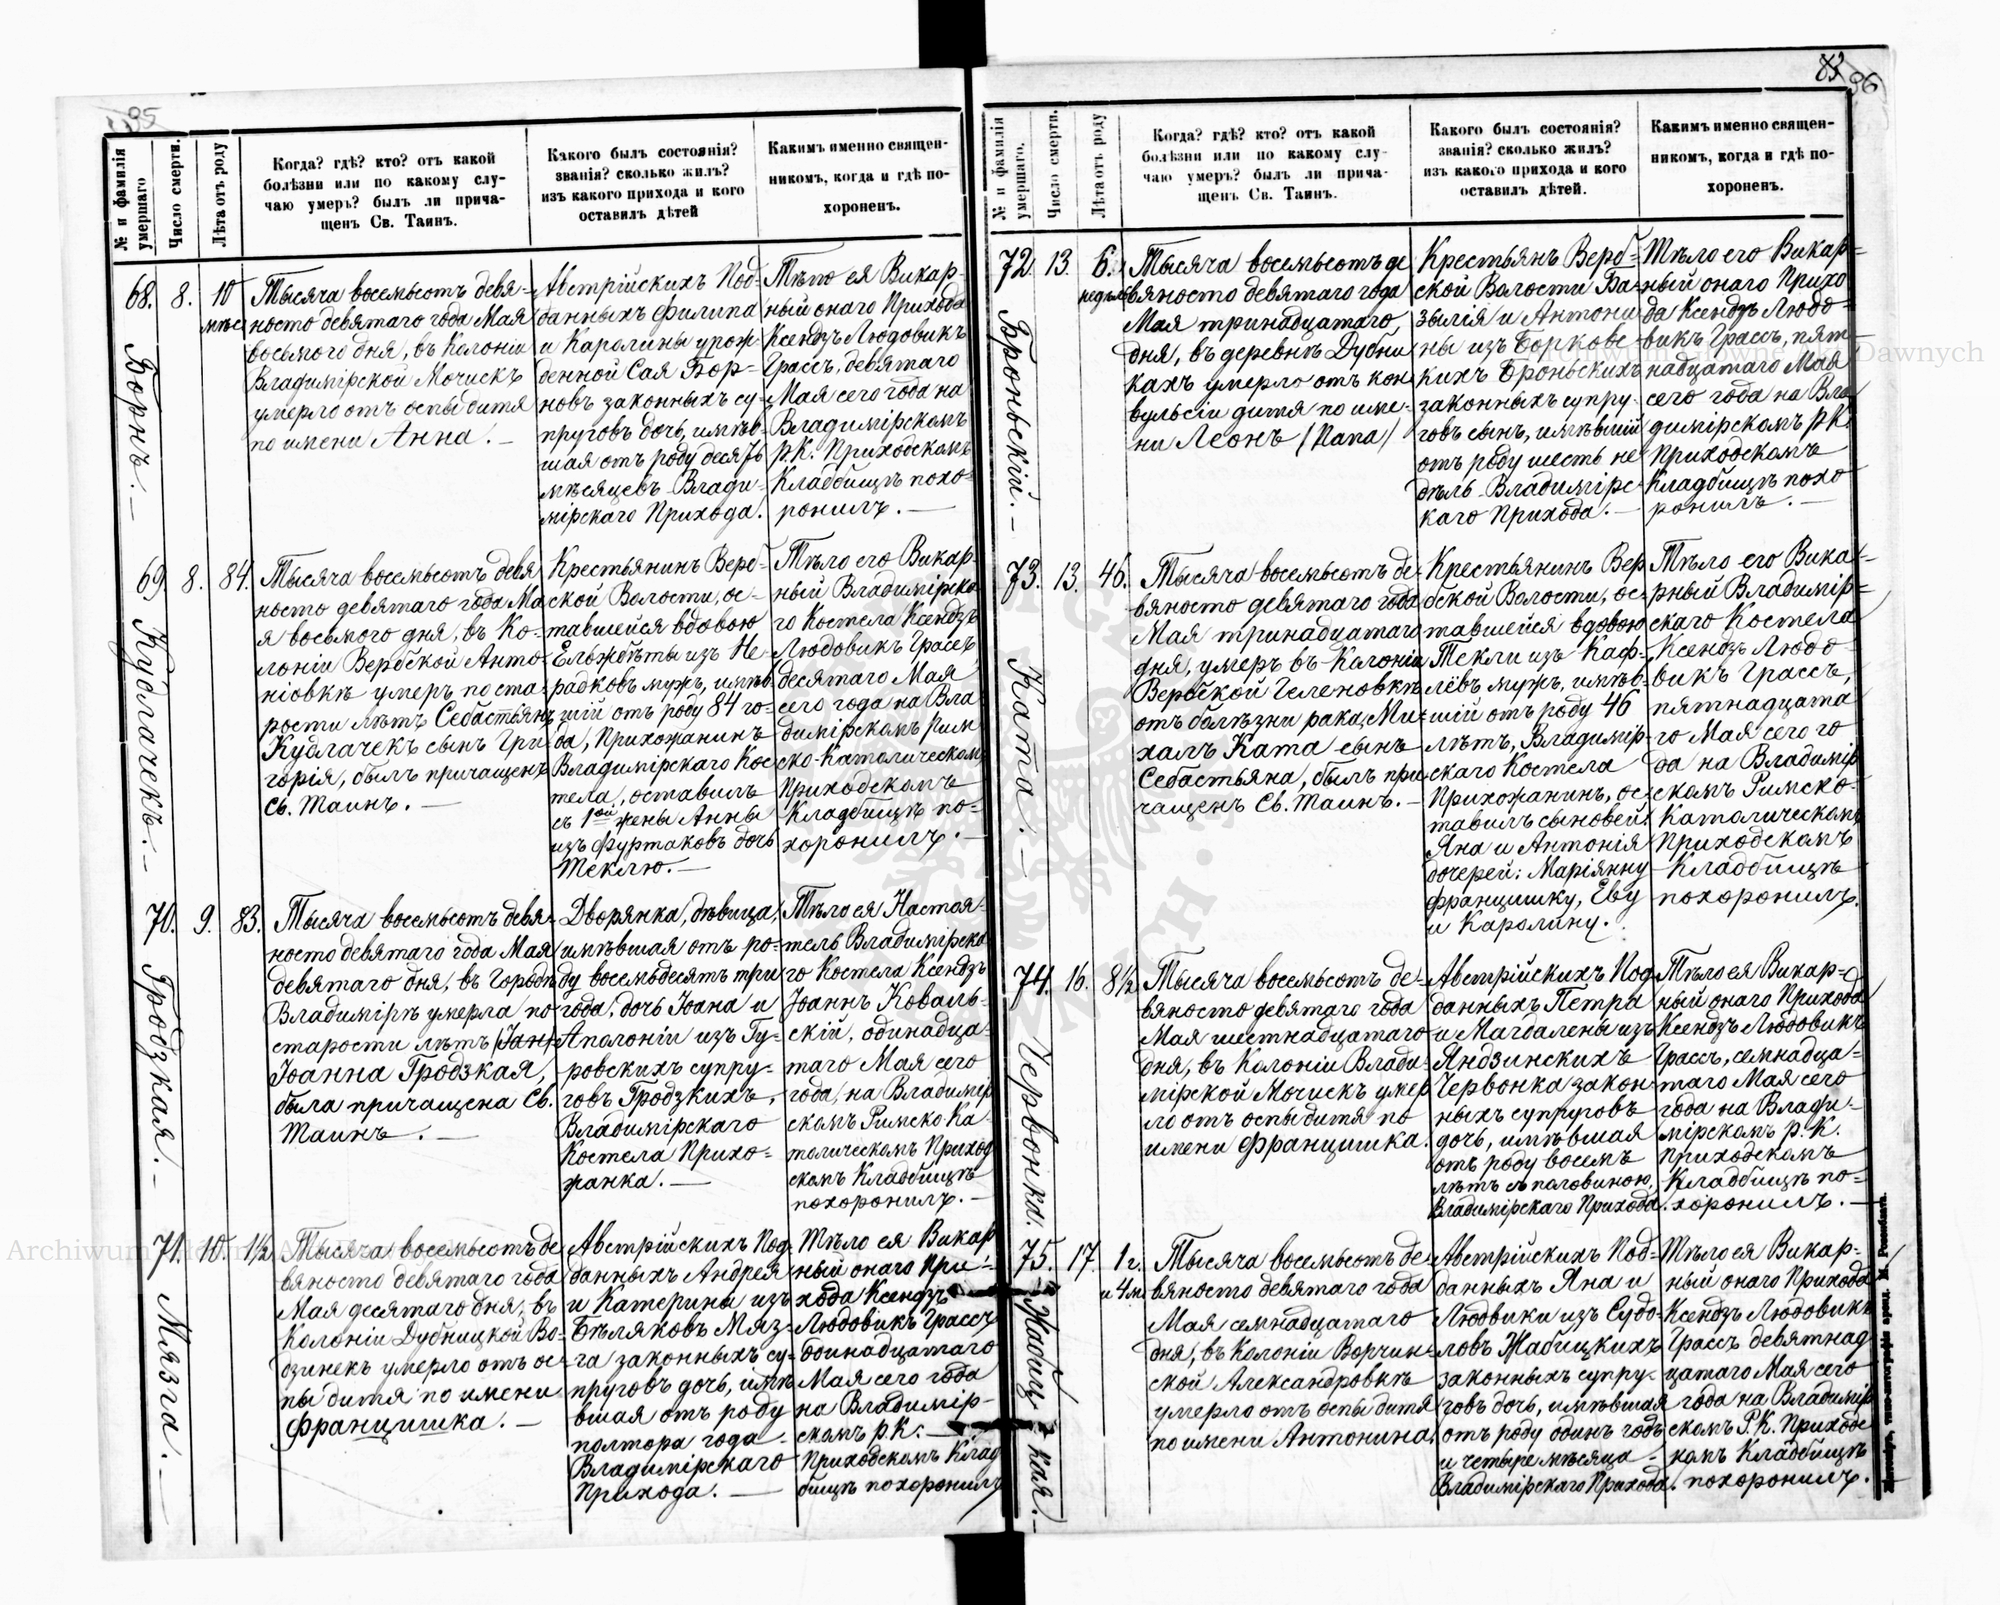 95
№ и фамилія умершаго
Число смерти.
Лѣта отъ роду
Когда? гдѣ? кто? отъ какой
болѣзни или по какому слу-
чаю умеръ? былъ ли прича-
щенъ Св. Таинъ.
Какого былъ состоянія?
званія? сколько жилъ?
изъ какого прихода и кого
оставилъ дѣтей
Какимъ именно священ-
никомъ, когда и гдѣ по-
хороненъ.
68.
Борнъ. —
8.
10
мѣс.
Тысяча восемьсотъ девя-
носто девятаго года Мая
восьмого дня, въ Колоніи
Владимірской Мочискъ
умерло отъ оспы дитя
по имени Анна. —
Австрійскихъ Под-
данныхъ Филипа
и Каролины урож-
денной Сая Бор-
новъ законныхъ су-
пруговъ дочь, имѣв-
шая отъ роду десять
мѣсяцевъ Влади-
мірскаго Прихода.
Тѣло ея Викар-
ный онаго Прихода
Ксендзъ Людовикъ
Грассъ, девятаго
Мая сего года на
Владимірскомъ
р.К. Приходскомъ
Кладбищѣ похо-
ронилъ. —
69.
Кудлачекъ. —
8.
84.
Тысяча восемьсотъ девя
носто девятаго года Ма
я восьмого дня, въ Ко-
лоніи Вербской Анто-
ніовкѣ умеръ по ста-
рости лѣтъ Себастьянъ
Кудлачекъ сынъ Гри
горія, былъ причащенъ
Св. Таинъ. —
Крестьянинъ Верб-
ской Волости, ос-
тавшейся вдовою
Ельжбѣты изъ Не-
радковъ мужъ, имѣв-
шій отъ роду 84 го-
да, Прихожанинъ
Владимірскаго Кос-
тела, оставилъ
съ 1ой жены Анны
изъ Фуртаковъ дочь
Теклю. —
Тѣло его Викар-
ный Владимірска-
го Костела Ксендзъ
Людовикъ Грассъ,
десятаго Мая
сего года на Вла
димірскомъ Рим
ско-Католическомъ
Приходскомъ
Кладбищѣ по-
хоронилъ. —
70.
Гродзкая. —
9.
83.
Тысяча восемьсотъ девя-
носто девятаго года Мая
девятаго дня, въ Городѣ
Владимірѣ умерла по
старости лѣтъ
Іоанна Гродзкая,
была причащена Св.
Таинъ. —
Дворянка, дѣвица,
имѣвшая отъ ро-
ду восемьдесятъ три
года, дочь Іоана и
Аполоніи изъ Гу-
ровскихъ супру-
говъ Гродзкихъ,
Владимірскаго
Костела Прихо-
жанка. —
Тѣло ея Настоя-
тель Владимірска
го Костела Ксендзъ
Іоаннъ Коваль-
скій, одинадца-
таго Мая сего
года, на Владимір
скомъ Римско Ка-
толическомъ Приход
скомъ Кладбищѣ
похоронилъ. —
71.
Мязга. —
10.
1½
Тысяча восемьсотъ де
вяносто девятаго года
Мая десятаго дня, въ
Колоніи Дубницкой Во-
дзинекъ умерло отъ ос-
пы дитя по имени
Францишка. —
Австрійскихъ Под-
данныхъ Андрея
и Катерины изъ
Бѣляковъ Мяз-
га законныхъ су-
пруговъ дочь, имѣ
вшая отъ роду
полтора года
Владимірскаго
Прихода. —
Тѣло ея Викар
ный онаго При-
хода Ксендзъ
Людовикъ Грассъ
одинадцатаго
Мая сего года
на Владимір-
скомъ р.К.
Приходскомъ Клад
бищѣ похоронилъ
96
№ и фамилія умершаго.
Число смерти.
Лѣта отъ роду
Когда? гдѣ? кто? отъ какой
болѣзни или по какому слу-
чаю умеръ? былъ ли прича-
щенъ Св. Таинъ.
Какого былъ состоянія?
званія? сколько жилъ?
изъ какого прихода и кого
оставилъ дѣтей.
Какимъ именно священ-
никомъ, когда и гдѣ по-
хороненъ.
72.
Броньскій. —
13.
6.
недѣль
Тысяча восемьсотъ де
вяносто девятаго года
Мая тринадцатаго
дня, въ деревнѣ Дубни
кахъ умерло отъ кон
вульсіи дитя по име-
ни Леонъ (Папа)
Крестьянъ Верб-
ской Волости Ба-
зылія и Антони
ны изъ Борковс-
кихъ Броньскихъ
законныхъ супру-
говъ сынъ, имѣвшій
отъ роду шесть не
дѣль Владимірс-
каго Прихода. —
Тѣло его Викар-
ный онаго Прихо
да Ксендзъ Людо-
викъ Грассъ, пят
надцатаго Мая
сего года на Вла
димірскомъ р.К.
Приходскомъ
Кладбищѣ похо
ронилъ. —
73.
Ката. —
13.
46.
Тысяча восемьсотъ де-
вяносто девятаго года
Мая тринадцатаго
дня, умеръ въ Колоніи
Вербской Геленовкѣ
отъ болѣзни рака, Ми-
халъ Ката сынъ
Себастьяна, былъ при
чащенъ Св. Таинъ. —
Крестьянинъ Вер
бской Волости, ос-
тавшейся вдовою
Текли изъ Каф-
лёвъ мужъ, имѣв-
шій отъ роду 46
лѣтъ, Владимір-
скаго Костела
Прихожанинъ, ос-
тавилъ сыновей:
Яна и Антонія
дочерей: Маріянну
Францишку, Еву
и Каролину.
Тѣло его Вика-
рный Владимір-
скаго Костела
Ксендзъ Людо-
викъ Грассъ,
пятнадцата
го Мая сего го
да на Владимір
скомъ Римско-
Католическомъ
Приходскомъ
Кладбищѣ
похоронилъ.
74.
Червонка.
16.
8½
Тысяча восемьсотъ де-
вяносто девятаго года
Мая шестнадцатаго
дня, въ Колоніи Влади-
мірской Мочискъ умер
ло отъ оспы дитя по
имени Францишка.
Австрійскихъ Под
данныхъ Петра
и Магдалены изъ
Яндзинскихъ
Червонка закон
ныхъ супруговъ
дочь, имѣвшая
отъ роду восемъ
лѣтъ съ половиною,
Владимірскаго Прихода.
Тѣло ея Викар-
ный онаго Прихода
Ксендзъ Людовикъ
Грассъ, семнадца-
таго Мая сего
года на Влади-
мірскомъ р.К.
Приходскомъ
Кладбищѣ по-
хоронилъ. —
75.
Жабицкая. —
17.
1 г.
и 4 м.
Тысяча восемьсотъ де-
вяносто девятаго года
Мая семнадцатаго
дня, въ Колоніи Ворчин-
ской Александровкѣ
умерло отъ оспы дитя
по имени Антонина.
Австрійскихъ Под-
данныхъ Яна и
Людовики изъ Судо-
ловъ Жабицкихъ
законныхъ супру-
говъ дочь, имѣвшая
отъ роду одинъ годъ
и четыре мѣсяца
Владимірскаго Прихода.
Тѣло ея Викар-
ный онаго Прихода
Ксендзъ Людовикъ
Грассъ девятнад
цатаго Мая сего
года на Владимір
скомъ Р.К. Приходс
комъ Кладбищѣ
похоронилъ.